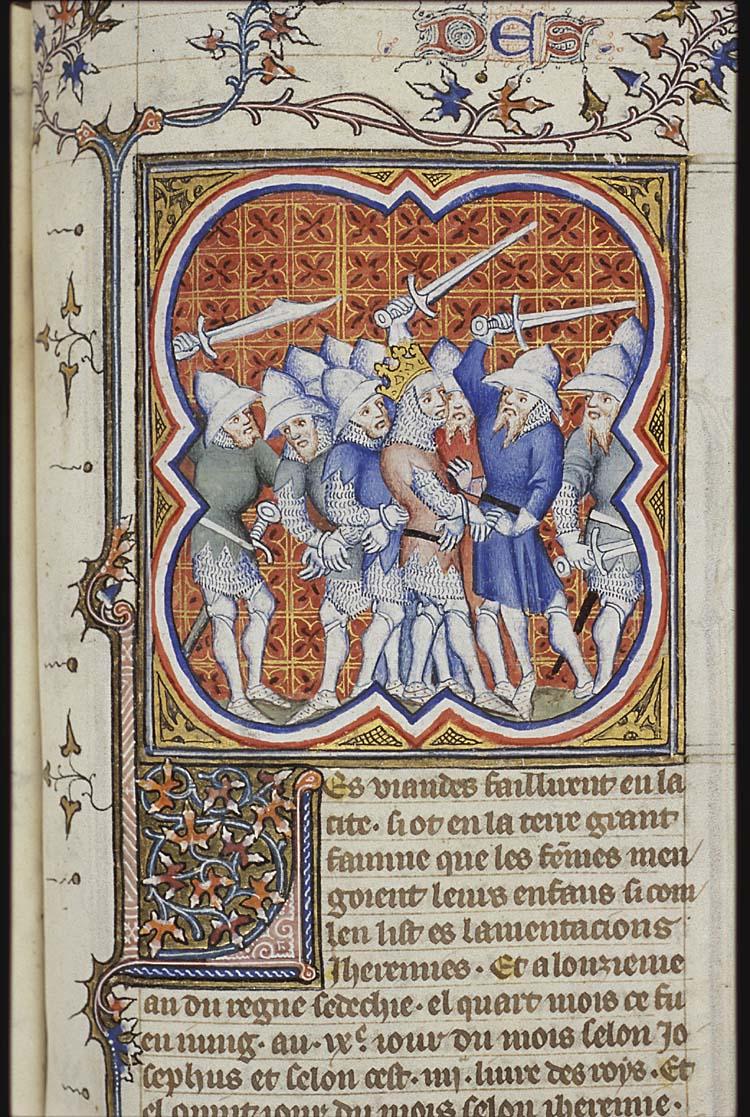 DES
Les viandes faillirent en la
cite. si ot en la terre grant
famine que les femes men
goient leurs enfans si com
len list es lamentacions
Iheremies. Et a lonzieme
an du regne sedechie. el quart mois ce fu
en iuing. au .ixe. iour du mois selon Jo
sephus et selon cest .iiij. liure des roys. Et
el quint iour du mois selon iheremie.